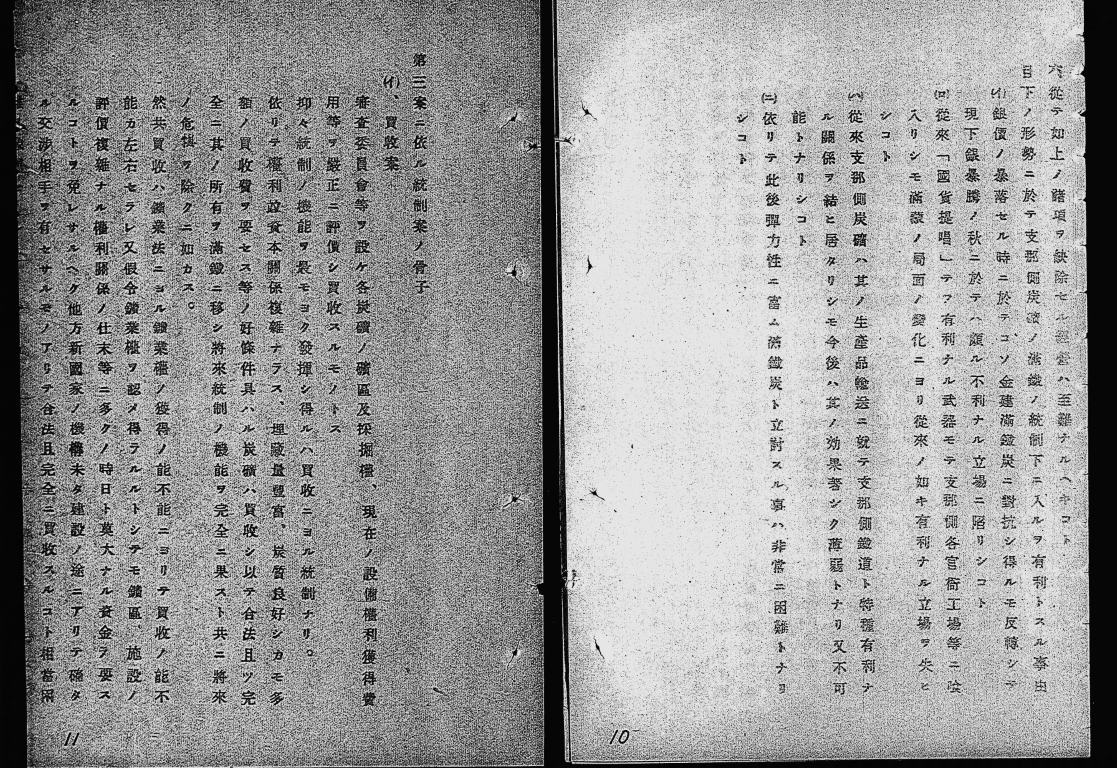 六、從テ如上ノ諸項ヲ缺除セル經營ハ至難ナルヘキコト
目下ノ形勢ニ於テ支那側炭礦ノ滿鐵ノ統制下ニ入ルヲ有利トスル事由
(イ)銀價ノ暴落セル時ニ於テコソ金建滿鐵炭ニ對抗シ得ルモ反轉シテ
現下銀暴騰ノ秋ニ於テハ頗ル不利ナル立場ニ陷リシコト
(ロ)從來「國貨提唱」テフ有利ナル武器モテ支那側各官衙工場等ニ喰
入リシモ滿蒙ノ局面ノ變化ニヨリ從來ノ如キ有利ナル立場ヲ失ヒ
シコト
(ハ)從來支那側炭礦ハ其ノ生產品輸送ニ就テ支那側鐵道ト特種有利ナ
ル關係ヲ結ヒ居タリシモ今後ハ其ノ効果著シク薄弱トナリ又不可
能トナリシコト
(ニ)依リテ此後彈力性ニ富ム滿鐵炭ト立討スル事ハ非常ニ困難トナリ
シコト
10
第三案ニ依ル統制案ノ骨子
(イ)、買收案
審査委員會等ヲ設ケ各炭礦ノ礦區及採掘權、現在ノ設備權利獲得費
用等ヲ嚴正ニ評價シ買收スルモノトス
抑々統制ノ機能ヲ最モヨク發揮シ得ルハ買收ニヨル統制ナリ。
依リテ權利設資本關係複雜ナラス、埋藏量豐富、炭質良好シカモ多
額ノ買收費ヲ要セス等ノ好條件具ハル炭礦ハ買收シ以テ合法且ツ完
全ニ其ノ所有ヲ滿鐵ニ移シ將來統制ノ機能ヲ完全ニ果スト共ニ將來
ノ危惧ヲ除クニ如カス。
然共買收ハ鑛業法ニヨル鑛業權ノ獲得ノ能不能ニヨリテ買收ノ能不
能カ左右セラレ又假令鑛業權ヲ認メ得ラルルトシテモ鑛區、施設ノ
評價複雜ナル權利關係ノ仕末等ニ多クノ時日ト莫大ナル資金ヲ要ス
ルコトヲ免レサルヘク他方新國家ノ機構未タ建設ノ途ニアリテ確タ
ル交渉相手ヲ有セサルモノアリテ合法且完全ニ買收スルコト相當困
11